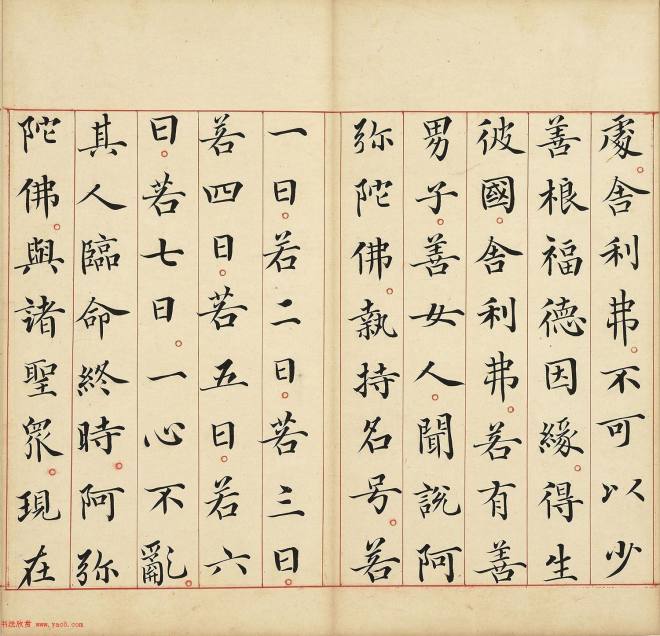 處。舍利弗。不可以少
善根福德因緣。得生
彼國。舍利弗。若有善
男子。善女人。聞說阿
弥陀佛。執持名号。若
一日。若二日。若三日。
若四日。若五日。若六
日。若七日。一心不亂。
其人臨命終時。阿弥
陀佛。與諸聖眾。現在
书法欣赏 www.yac8.com